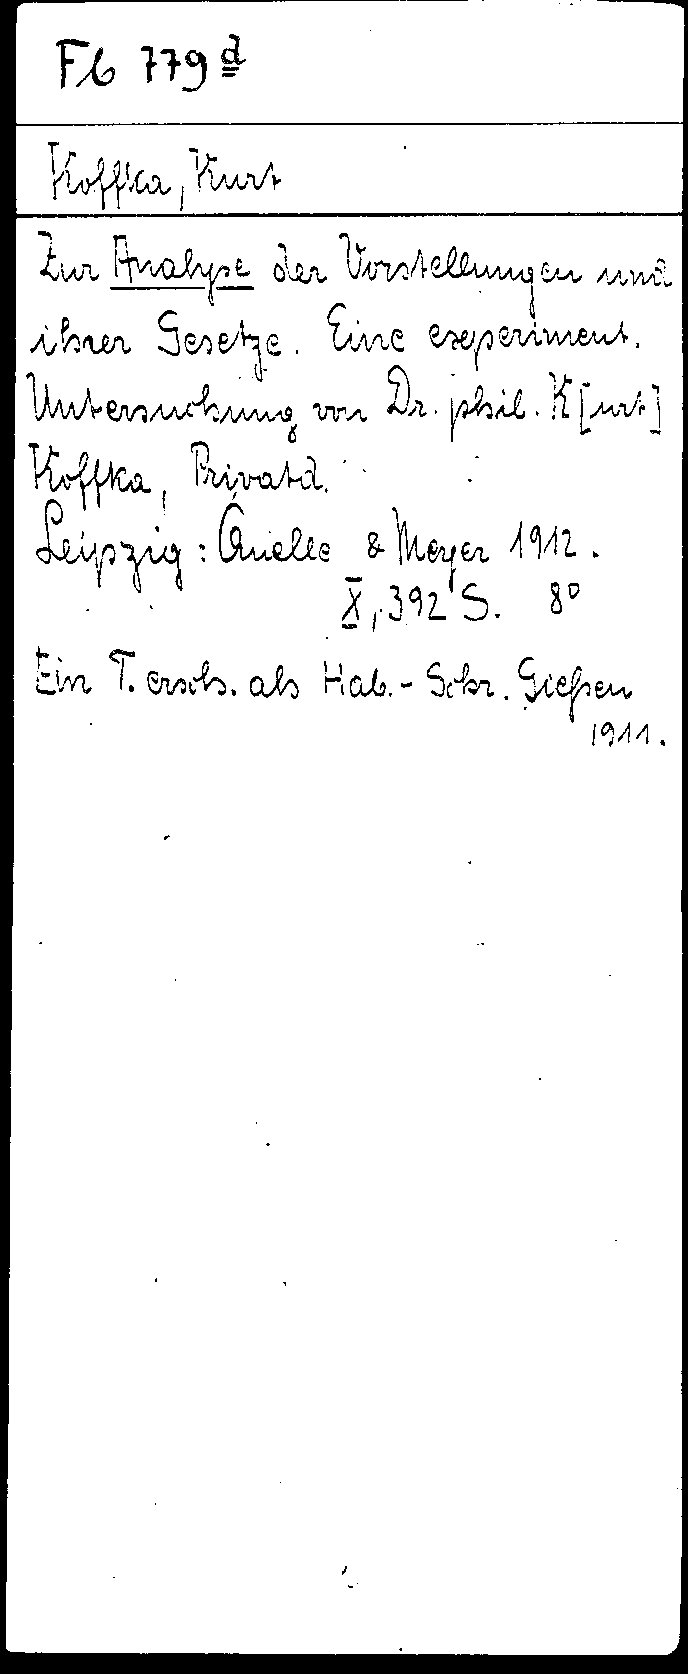 Fb 779 d
Koffka, Kurt
Zur Analyse der Vorstellungen und
ihrer Gesetze. Eine experiment.
Untersuchung von Dr. phil. K[urt]
Koffka, Privatd.
Leipzig: Quelle & Meyer 1912.
X, 392 S. 8°
Ein T. ersch. als Hab.-Schr. Gießen
1911.